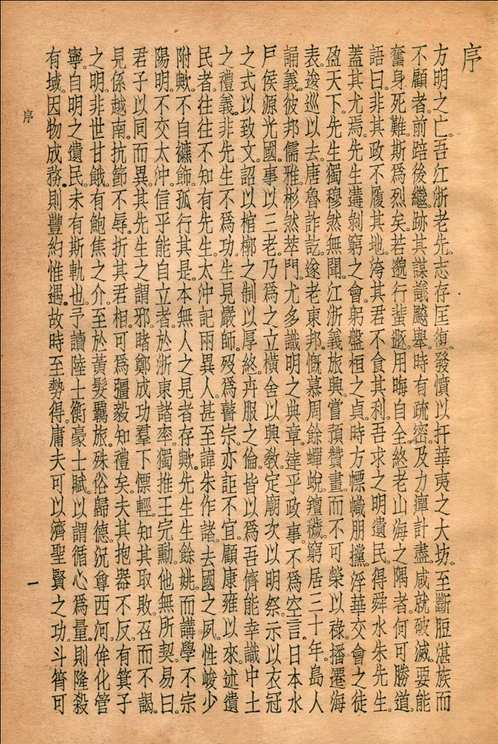 序
方明之亡吾江浙老先志存匡復發憤以扞華夷之大坊至斷脰湛族而
不顧者前踣後繼跡其謀議飈舉時有疏密及力殫計盡咸就破滅要能
奮身死難斯爲烈矣若行蜚用晦自全終老山海之隅者何可勝道
語曰非其政不履其地洿其君不食其利吾求之明遺民得舜水朱先生
蓋其尤焉先生剝窮之會躬盤桓之貞時方標幟朋攩浮華交會之徒
盈天下先生獨穆然無聞江浙義旅興嘗預贊畫而不可榮以祿播遷海
表逡巡以去唐魯訖遂老東邦慨慕周餘蟬蛻羶穢窮居三十年島人
誦義彼邦儒雅彬然萃門尤多識明之典章達乎政事不爲空言日本水
戶侯源光國事以三老乃爲之立橫舍以興敎定廟次以明祭示以衣冠
之式以致文詔以棺槨之制以厚終卉服之倫皆以爲吾儕能幸識中土
之禮義非先生不爲功生見嚴師歿爲瞽宗亦詎不宜顧康雍以來述遺
民者往往不知有先生太沖記兩異人甚至諱朱作諸去國之夙性峻少
附歟不自襮飾孤行其是本無人之見者存歟先生生餘姚而講學不宗
陽明不交太沖信乎能自立者於浙東諸率獨推王完勳他無所契易曰
君子以同而異其先生之謂邪睹鄭成功羣下僄輕知其取敗召而不謁
見係越南抗節不辱折其君相可爲彊毅知禮矣夫其抱器不反有箕子
之明非世甘餓有飽焦之介至於黃髮羈旅殊俗歸德況尊西河侔化管
寧自明之遺民未有斯軌也予讀陸士衡豪士賦以謂循心爲量則隆殺
有域因物成務則豐約惟遇故時至勢得庸夫可以濟聖賢之功斗筲可
序
一